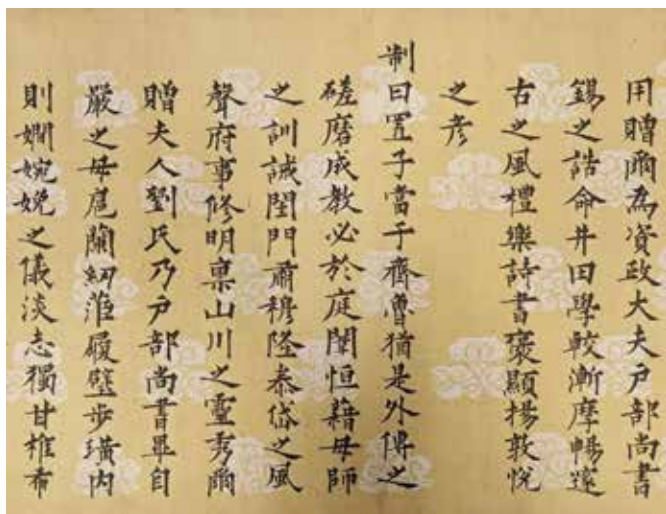 用贈爾為資政大夫戶部尚書
錫之誥命井田學較漸摩暢邃
古之風禮樂詩書褒顯揚敦悅
之彥
制曰置子當于齊魯猶是外傅之
磋磨成教必於庭闈恒藉母師
之訓誡閨門肅穆隆泰岱之風
聲府事修明稟山川之靈秀爾
贈夫人劉氏乃戶部尚書畢自
嚴之母扈蘭紉蕋履璧步璜內
則嫻婉娩之儀淡志獨甘椎布